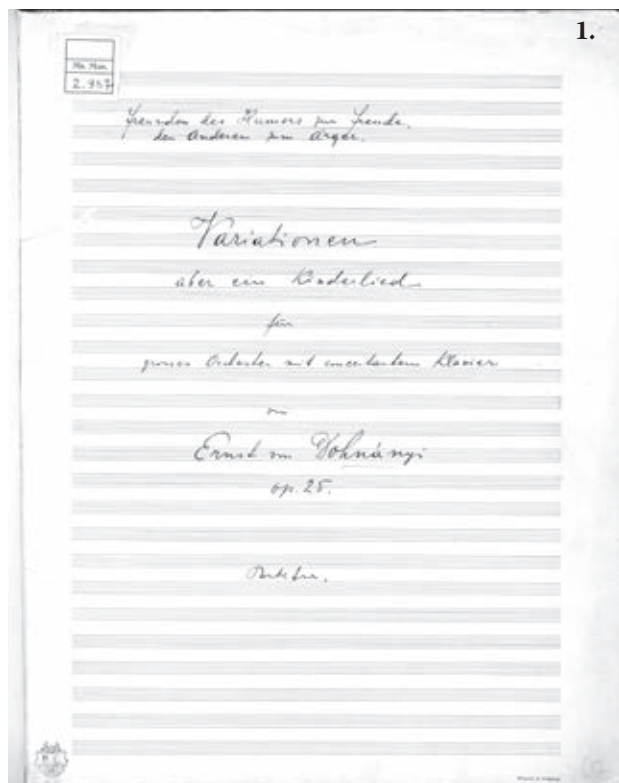 1.
Ms. Mus.
2.957
Freunden des Humors zur Freude,
den Anderen zum Ärger.
Variationen
über ein Kinderlied
für
grosses Orchester mit concertantem Klavier
von
Ernst von Dohnányi
op. 25.
Partitur.